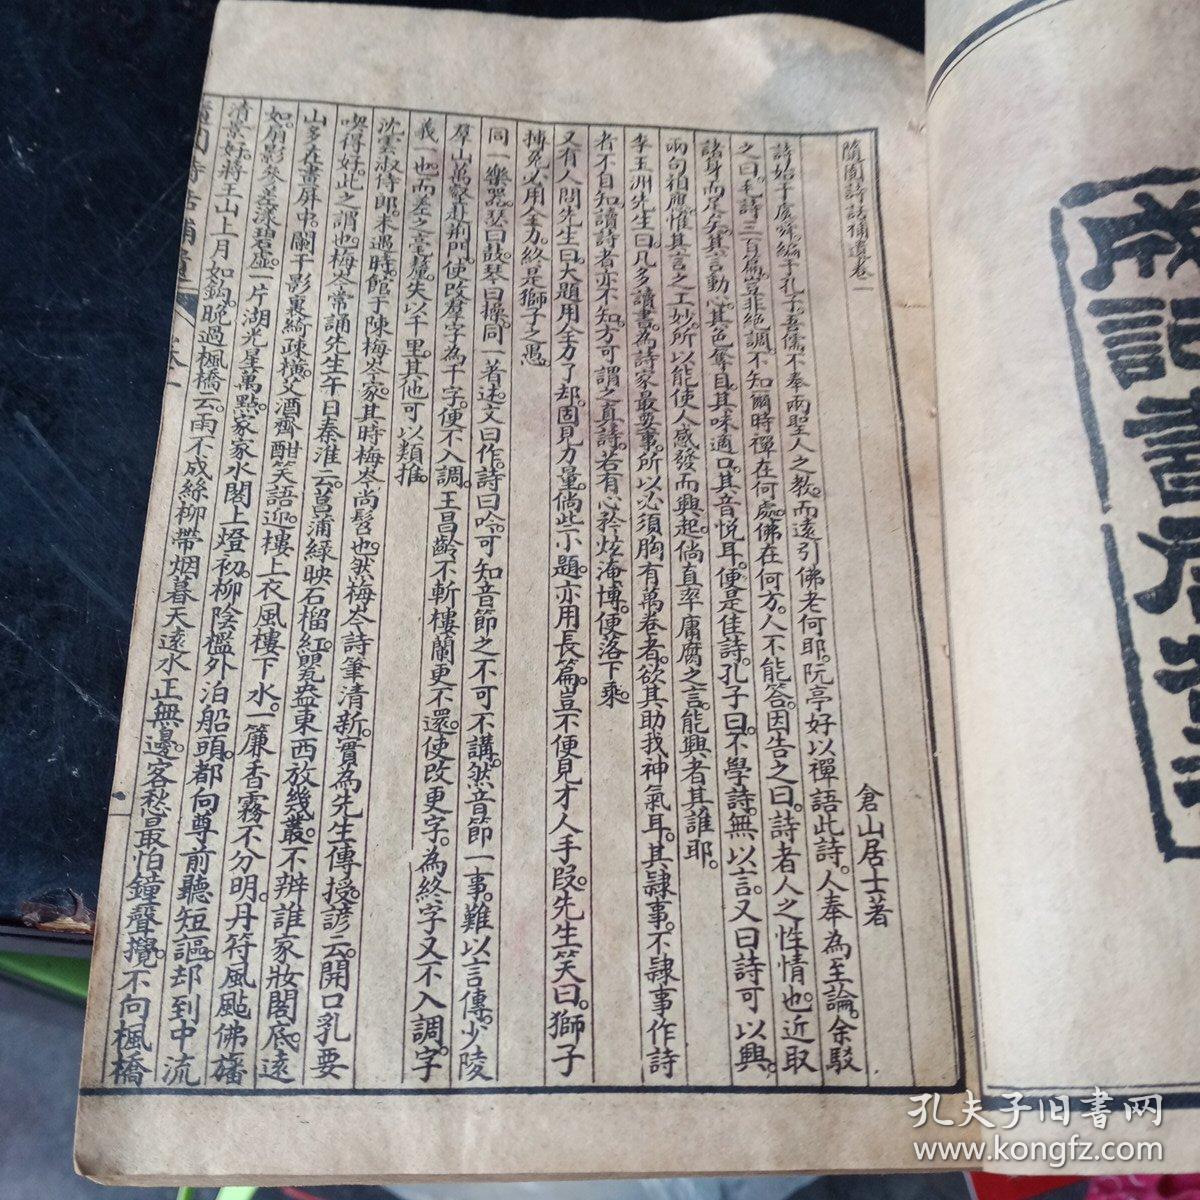 隨園詩話補遺卷一
倉山居士著
詩始于虞舜編于孔子吾儒不奉兩聖人之教而遠引佛老何耶阮亭好以禪語比詩人奉為至論余駁
之曰毛詩三百篇豈非絕調不知爾時禪在何處佛在何方人不能答因告之曰詩者人之性情也近取
諸身而足矣其言動心其色奪目其味適口其音悅耳便是佳詩孔子曰不學詩無以言又曰詩可以興
兩句相應惟其言之工妙所以能使人感發而興起倘直率庸腐之言能興者其誰耶
李玉洲先生曰凡多讀書為詩家最要事所以必須胸有萬卷者欲其助我神氣耳其隸事不隸事作詩
者不自知讀詩者亦不知方可謂之真詩若有心矜炫淹博便落下乘
又有人問先生曰大題用全力了却固見力量倘些小題亦用長篇豈不便見才人手段先生笑曰獅子
搏兔必用全力終是獅子之愚
同一樂器瑟曰鼓琴曰操同一著述文曰作詩曰吟可知音節之不可不講然音節一事難以言傳少陵
羣山萬壑赴荆門使改羣字為千字便不入調王昌齡不斬樓蘭更不還使改更字為終字又不入調字
義一也而差之毫釐失以千里其他可以類推
沈雲淑侍郎未遇時館于陳梅岑家其時梅岑尚髫也然梅岑詩筆清新實為先生傳授諺云開口乳要
喫得好此之謂也梅岑常誦先生午日秦淮云菖蒲綠映石榴紅罌盎東西放幾叢不辨誰家妝閣底遠
山多在畫屏中闌干影裏綺疎橫父酒齊酣笑語迎樓上衣風樓下水一簾香霧不分明丹符風颭佛旛
如扇影參差漾碧虛一片湖光星萬點家家水閣上燈初柳陰檻外泊船頭都向尊前聽短謳却到中流
清景好蔣王山上月如鈎晚過楓橋云雨不成絲柳帶烟暮天遠水正無邊客愁最怕鐘聲攪不向楓橋
隨園詩話補遺
卷一
一
孔夫子旧书网
www.kongfz.com